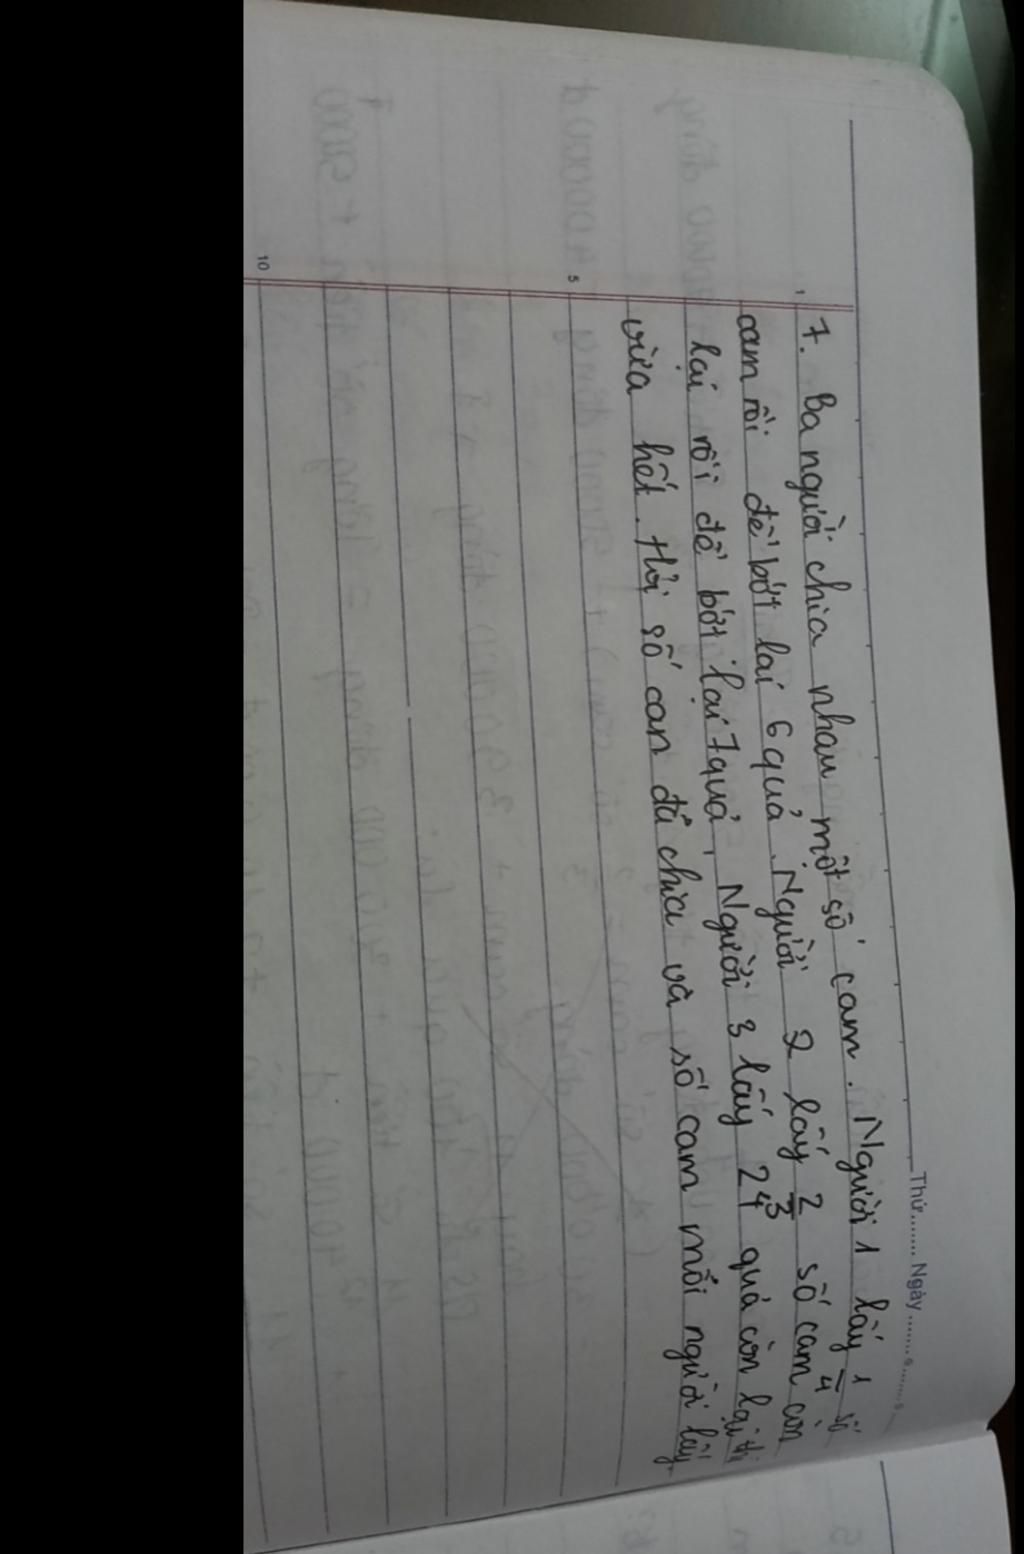 Thứ........ Ngày ........
7. Ba người chia nhau một số cam. Người 1 lấy 1/4 số
cam rồi để bớt lại 6 quả. Người 2 lấy 2/3 số cam còn
lại rồi để bớt lại 7 quả, Người 3 lấy 24 quả còn lại thì
vừa hết. Hỏi số can đã chia và số cam mỗi người lấy
1
5
10